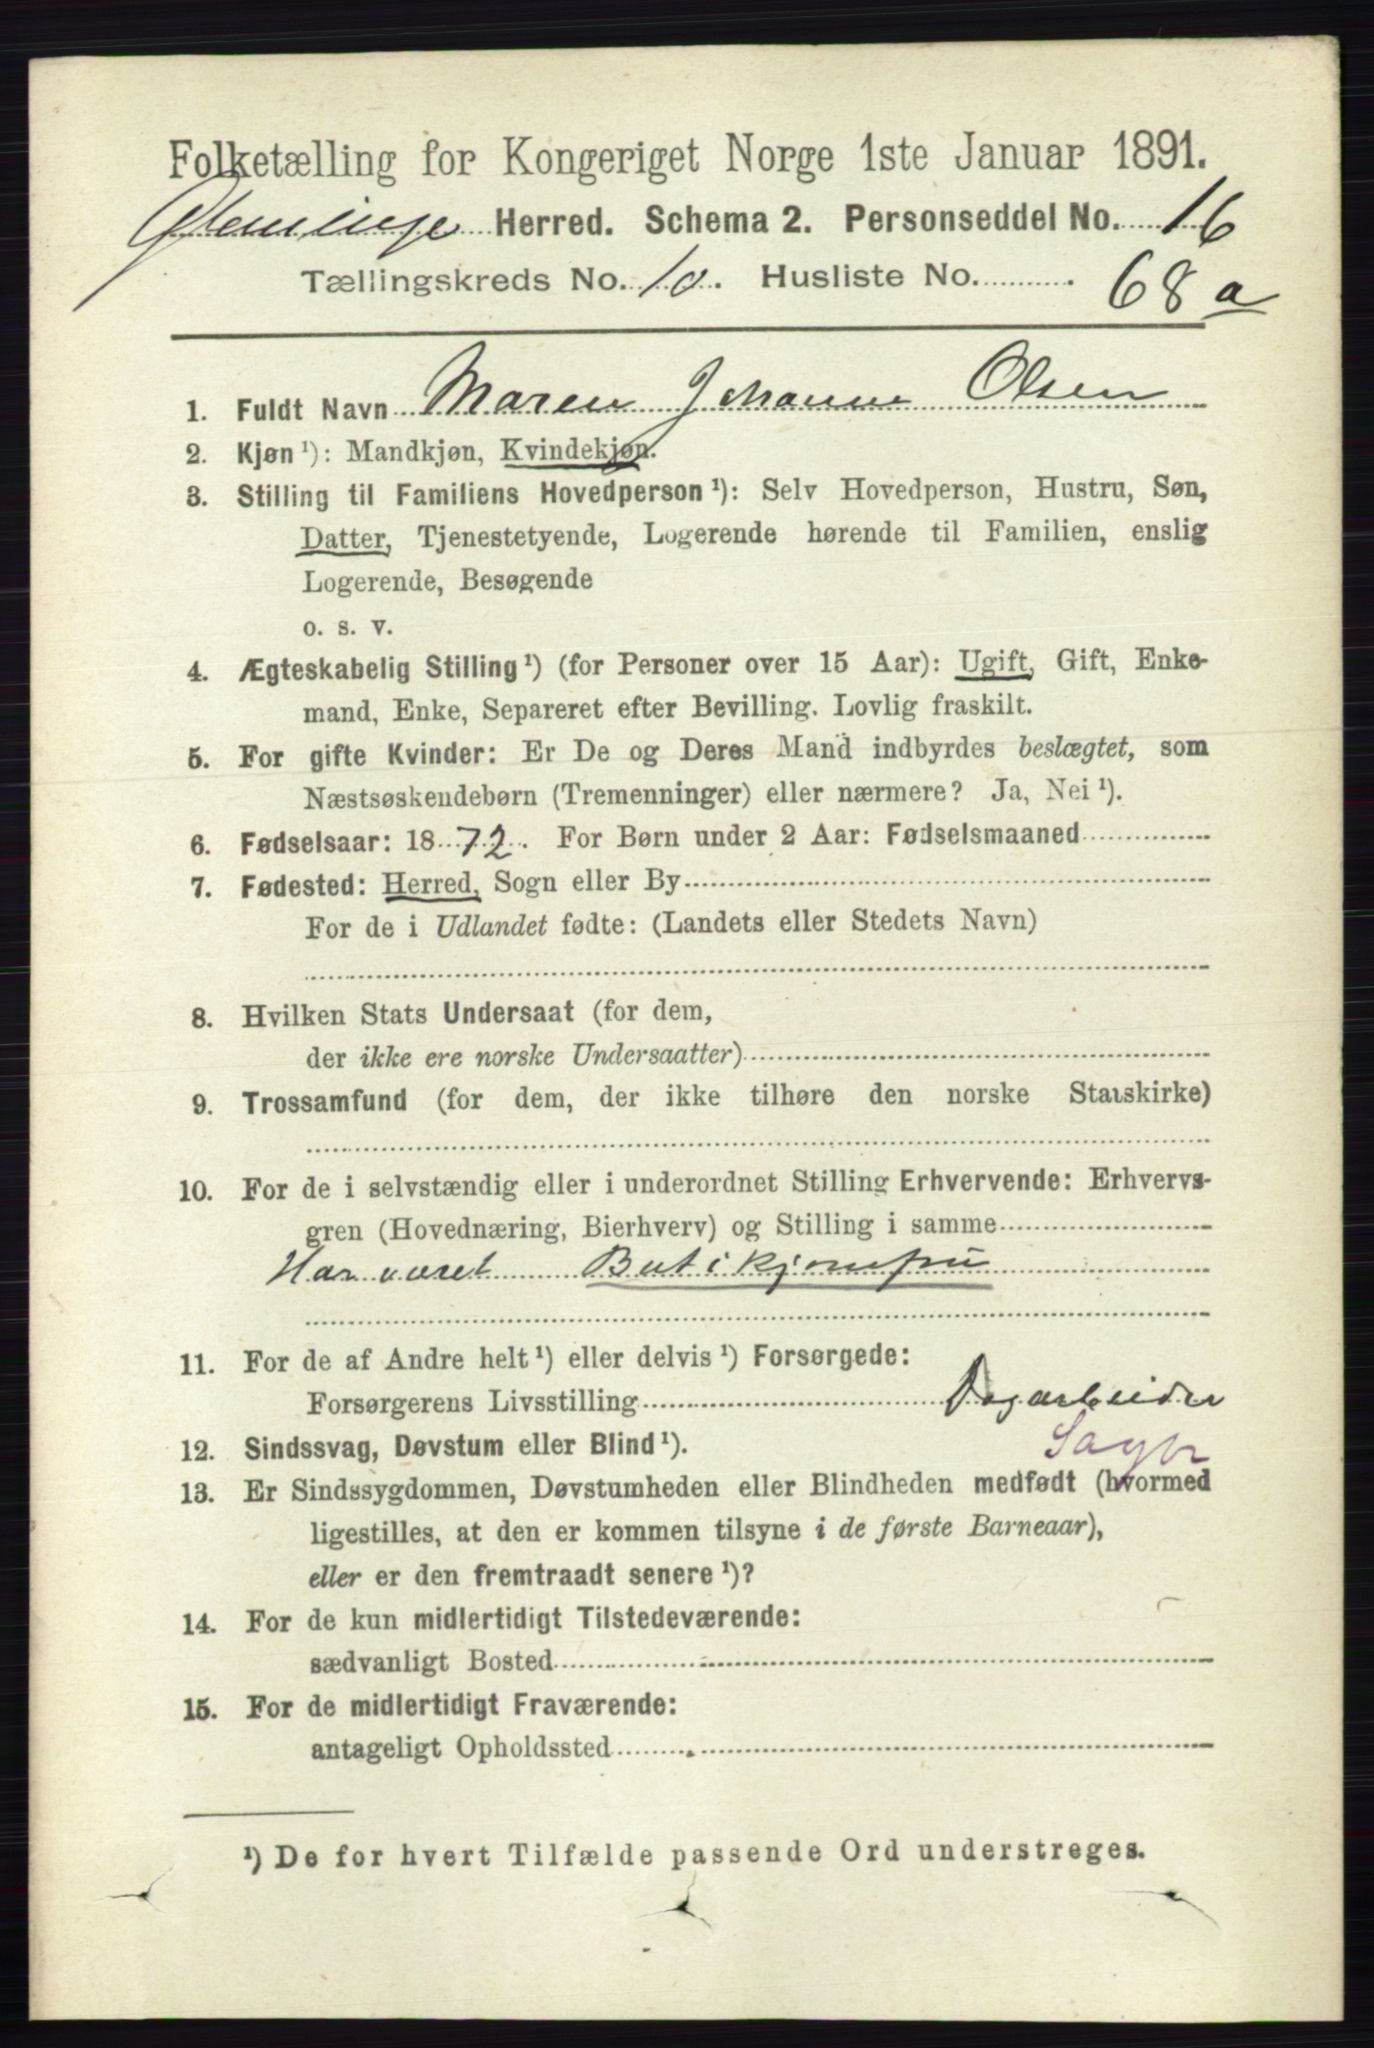 Folketælling for Kongeriget Norge 1ste Januar 1891.
Glemminge Herred. Schema 2. Personseddel No. 16
Tællingskreds No. 10. Husliste No. 68 a
1. Fuldt Navn Maren Johanne Olsen
2. Kjøn ¹): Mandkjøn, Kvindekjøn.
3. Stilling til Familiens Hovedperson ¹): Selv Hovedperson, Hustru, Søn,
Datter, Tjenestetyende, Logerende hørende til Familien, enslig
Logerende, Besøgende
o. s. v.
4. Ægteskabelig Stilling ¹) (for Personer over 15 Aar): Ugift, Gift, Enke-
mand, Enke, Separeret efter Bevilling. Lovlig fraskilt.
5. For gifte Kvinder: Er De og Deres Mand indbyrdes beslægtet, som
Næstsøskendebørn (Tremenninger) eller nærmere? Ja, Nei ¹).
6. Fødselsaar: 1872. For Børn under 2 Aar: Fødselsmaaned
7. Fødested: Herred, Sogn eller By
For de i Udlandet fødte: (Landets eller Stedets Navn)
8. Hvilken Stats Undersaat (for dem,
der ikke ere norske Undersaatter)
9. Trossamfund (for dem, der ikke tilhøre den norske Statskirke)
10. For de i selvstændig eller i underordnet Stilling Erhvervende: Erhvervs-
gren (Hovednæring, Bierhverv) og Stilling i samme
Har været Butikjomfru
11. For de af Andre helt ¹) eller delvis ¹) Forsørgede:
Forsørgerens Livsstilling Dagarbeider
12. Sindssvag, Døvstum eller Blind ¹).
13. Er Sindssygdommen, Døvstumheden eller Blindheden medfødt (hvormed
ligestilles, at den er kommen tilsyne i de første Barneaar),
eller er den fremtraadt senere ¹)?
14. For de kun midlertidigt Tilstedeværende:
sædvanligt Bosted
15. For de midlertidigt Fraværende:
antageligt Opholdssted
¹) De for hvert Tilfælde passende Ord understreges.